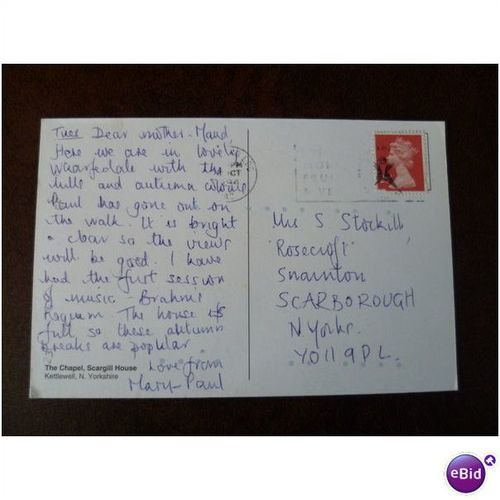 Tues Dear Mother-Maud
Here we are in lovely
Wharfedale with the
hills and autumn colours
Paul has gone out on
the walk. It is bright
& clear so the views
will be good. I have
had the first session
of music - Brahms
Requiem. The house is
full so these autumn
breaks are popular
Love from
Mary-Paul
The Chapel, Scargill House
Kettlewell, N. Yorkshire
OCT
Mrs S Stockill
'Rosecroft'
Snainton
SCARBOROUGH
N. Yorks.
YO11 9PL.
eBid